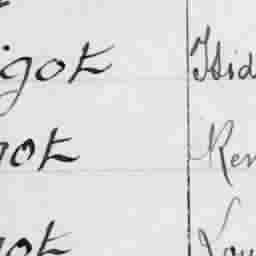 igot Hid
got Ren
got Lou